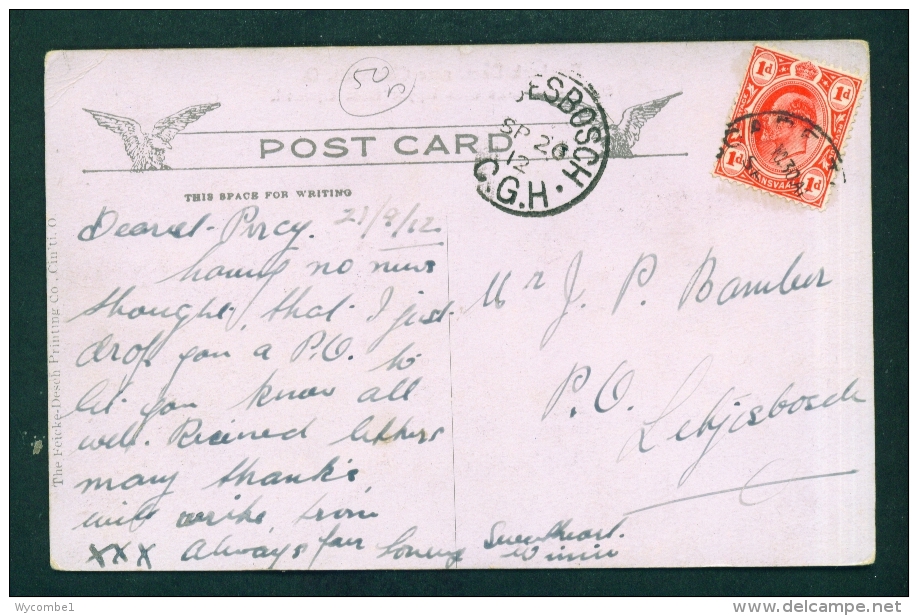 50
POST CARD
THIS SPACE FOR WRITING
ESBOSCH
SP 26
12
C.G.H.
1d 1d
1d TRANSVAAL 1d
The Feicke-Desch Printing Co., Cin'ti, O.
Dearest Percy.
having no news
thought that I just
drop you a P.O. to
let you know all
well. Received letters
many thanks
will write
xxx Always your loving Sweetheart
Winnie
Mr J. P. Bamber
P.O.
Letjesbosch
Wycombe1
http://www.delcampe.net